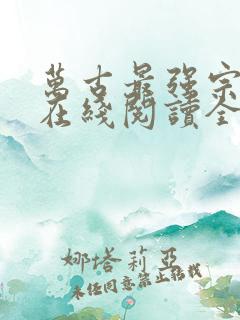 萬古最強宗
在綫閱讀全
娜塔莉亞
未經同意禁止轉載